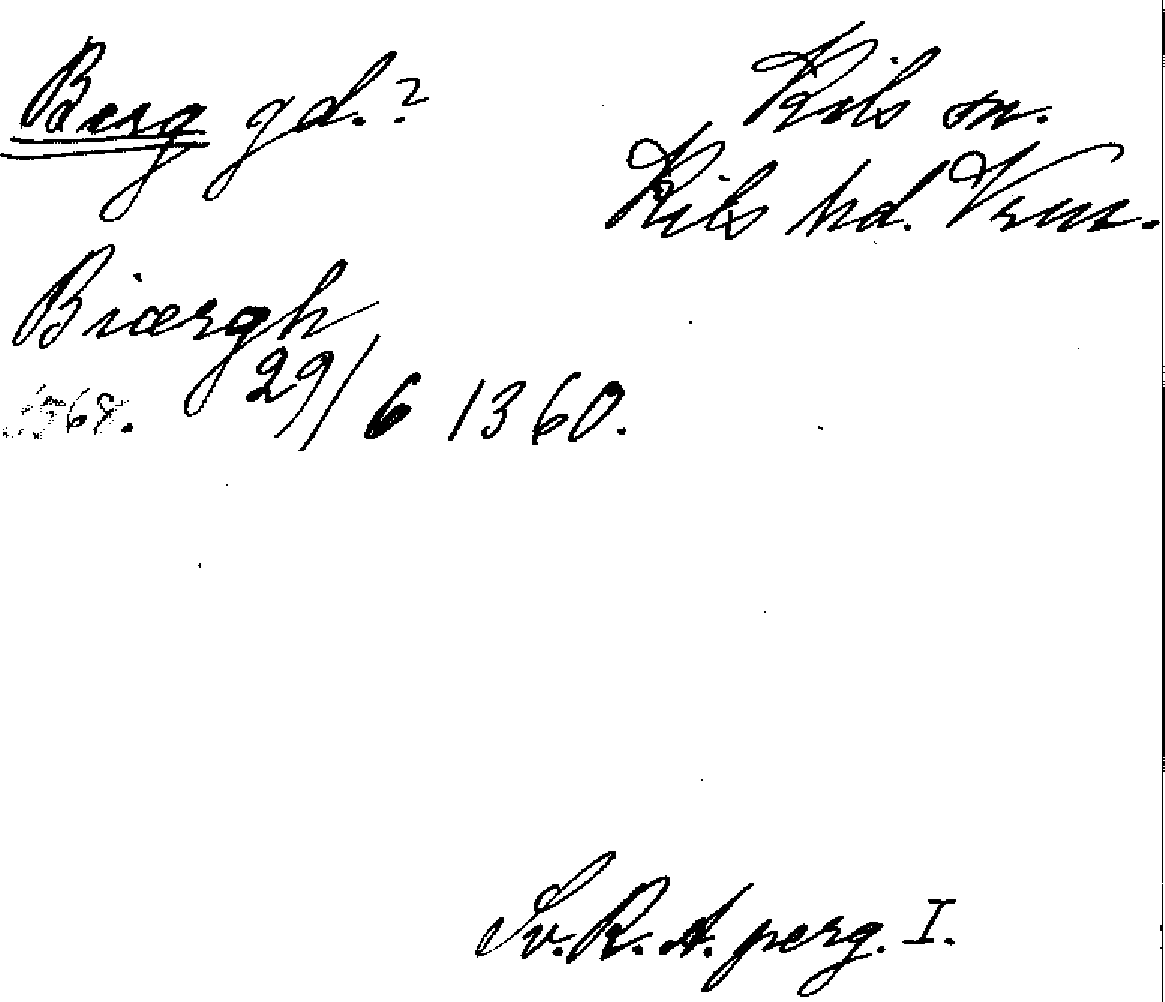 Berg gd.? Kils sn.
Kils hd. Vrm.
Biærgh
29/6 1360.
Sv. R. A. perg. I.